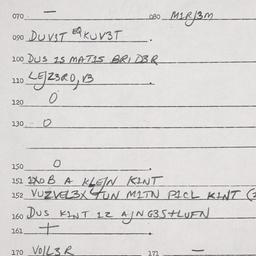 070 — 080 M1R/3M
090 DUV1T EQ KUV3T
100 DUS 1S MAT1S BR1D3R
110 LEJZ3R0,V3
120 0
130 0
150 0
151 B A KLEJN K1NT
152 VUZVEL3X TUN M1TN P1CL K1NT
160 DUS K1NT 1Z AJNG3S+LUFN
161 +
170 VO/L3R 171 —